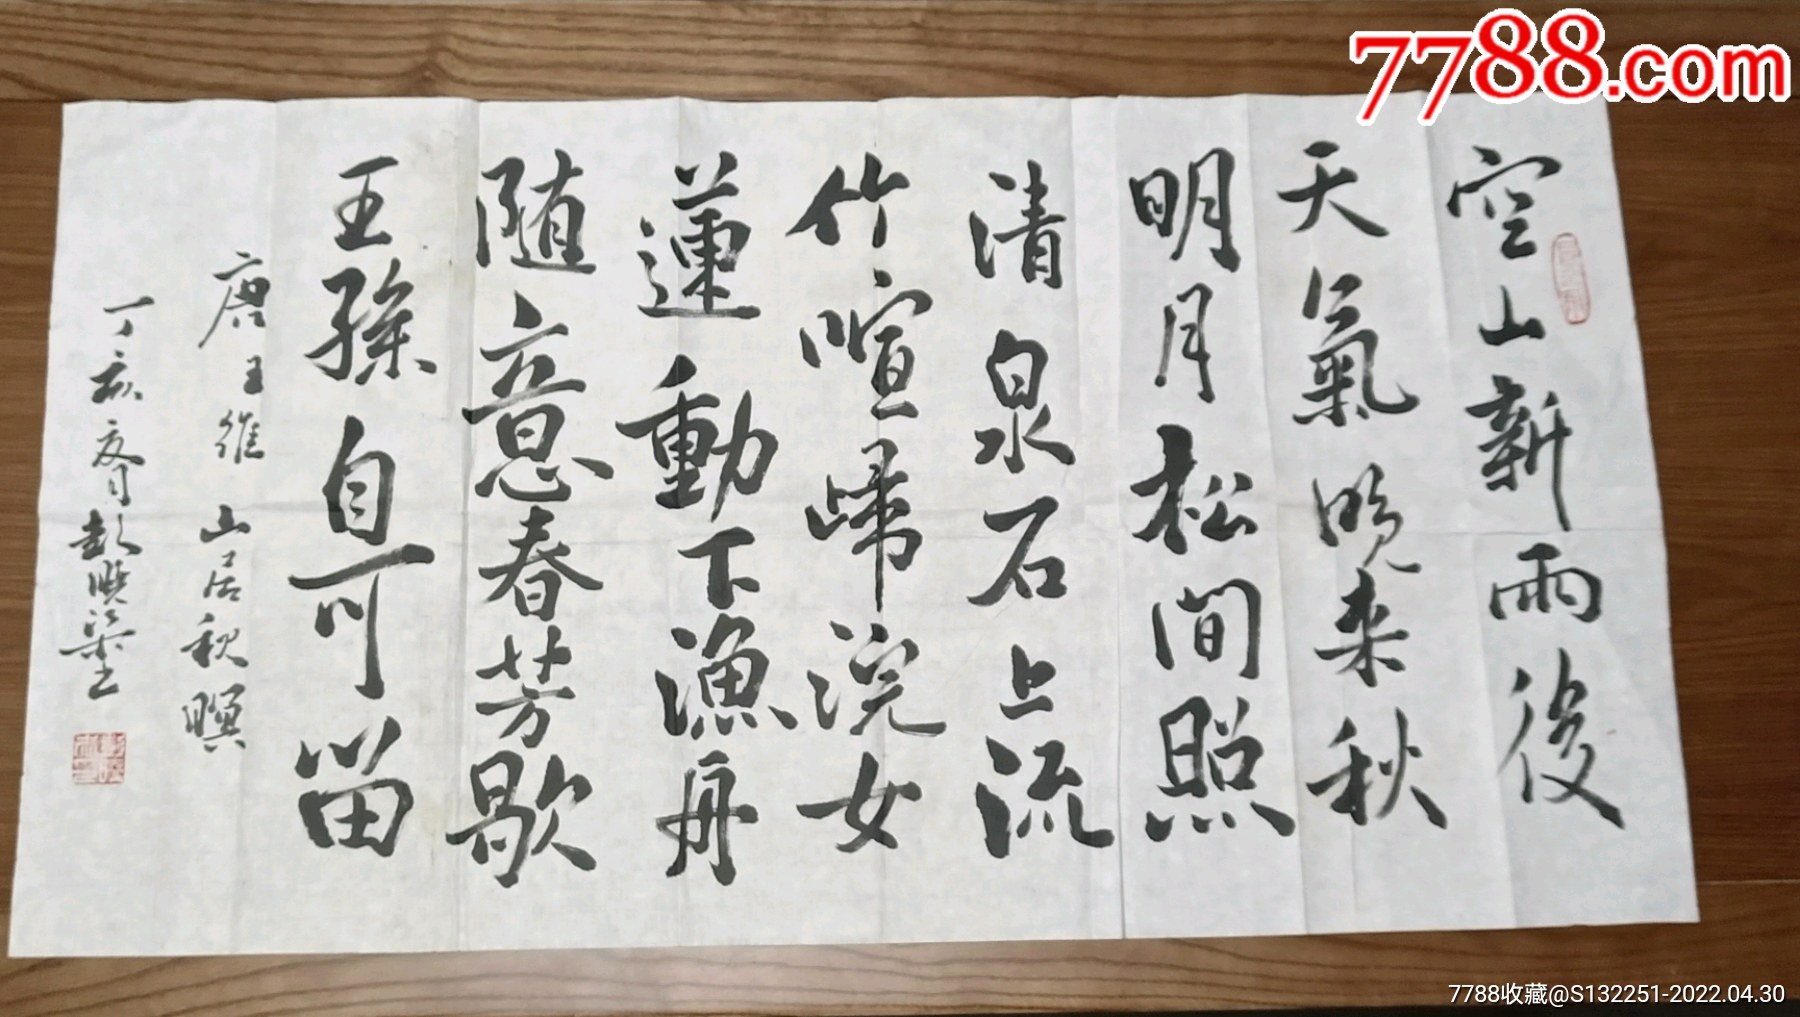 7788.com
空山新雨後
天氣晚来秋
明月松间照
清泉石上流
竹喧歸浣女
蓮動下漁舟
随意春芳歇
王孫自可留
唐王維山居秋暝
丁亥
7788收藏@S132251-2022.04.30